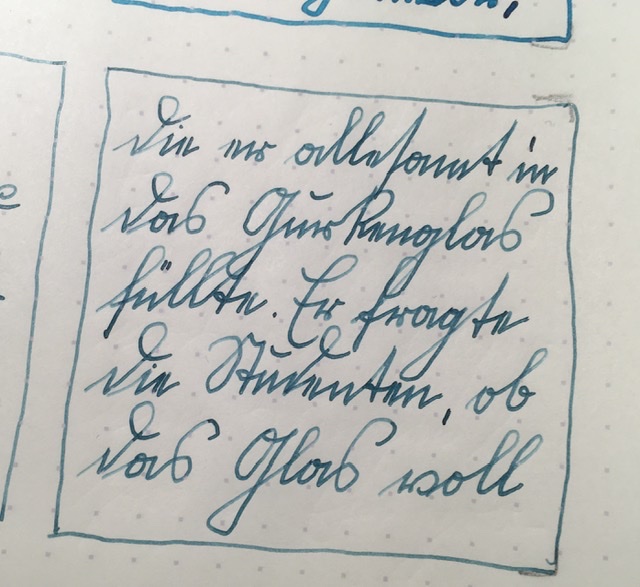 die er allesamt in
das Gurkenglas
füllte. Er fragte
die Studenten, ob
das Glas voll